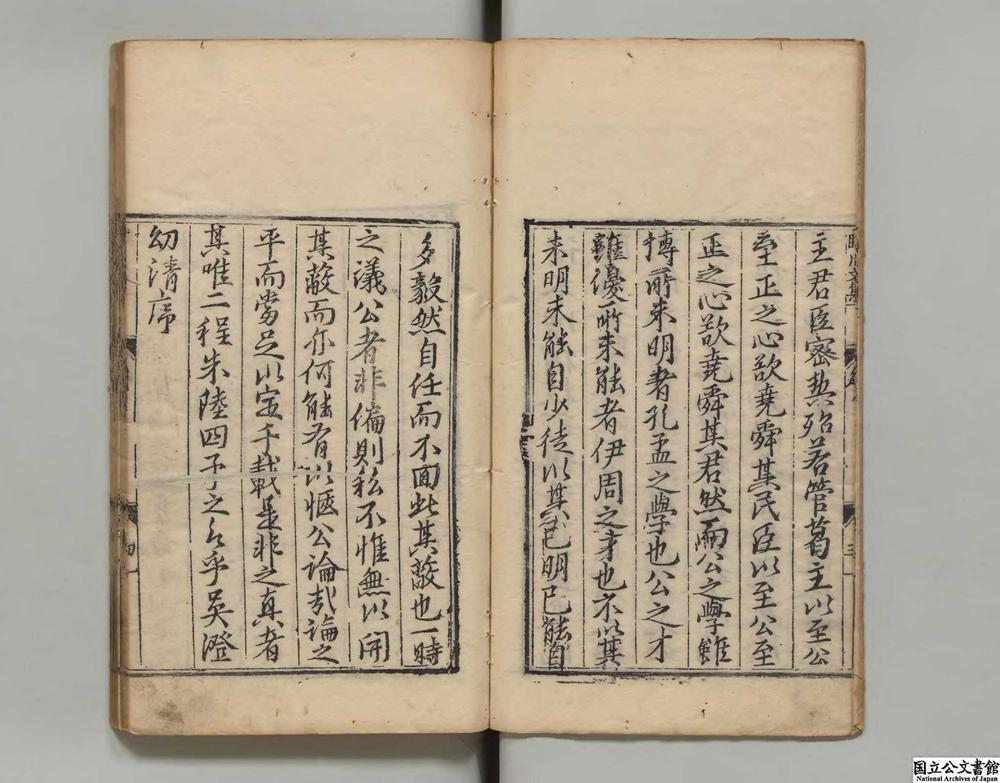 主君臣密契殆若管葛主以至公
至正之心欲堯舜其民臣以至公至
正之心欲堯舜其君然而公之學雖
博所未明者孔孟之學也公之才
雖優所未能者伊周之才也不以其
未明未能自少徒以其已明已能自
三
多毅然自任而不回此其蔽也一時
之議公者非偏則私不惟無以開
其蔽而亦何能有以愜公論哉論之
平而當足以定千載是非之真者
其唯二程朱陸四子之言乎吳澄
幼清序
四
国立公文書館
National Archives of Japan